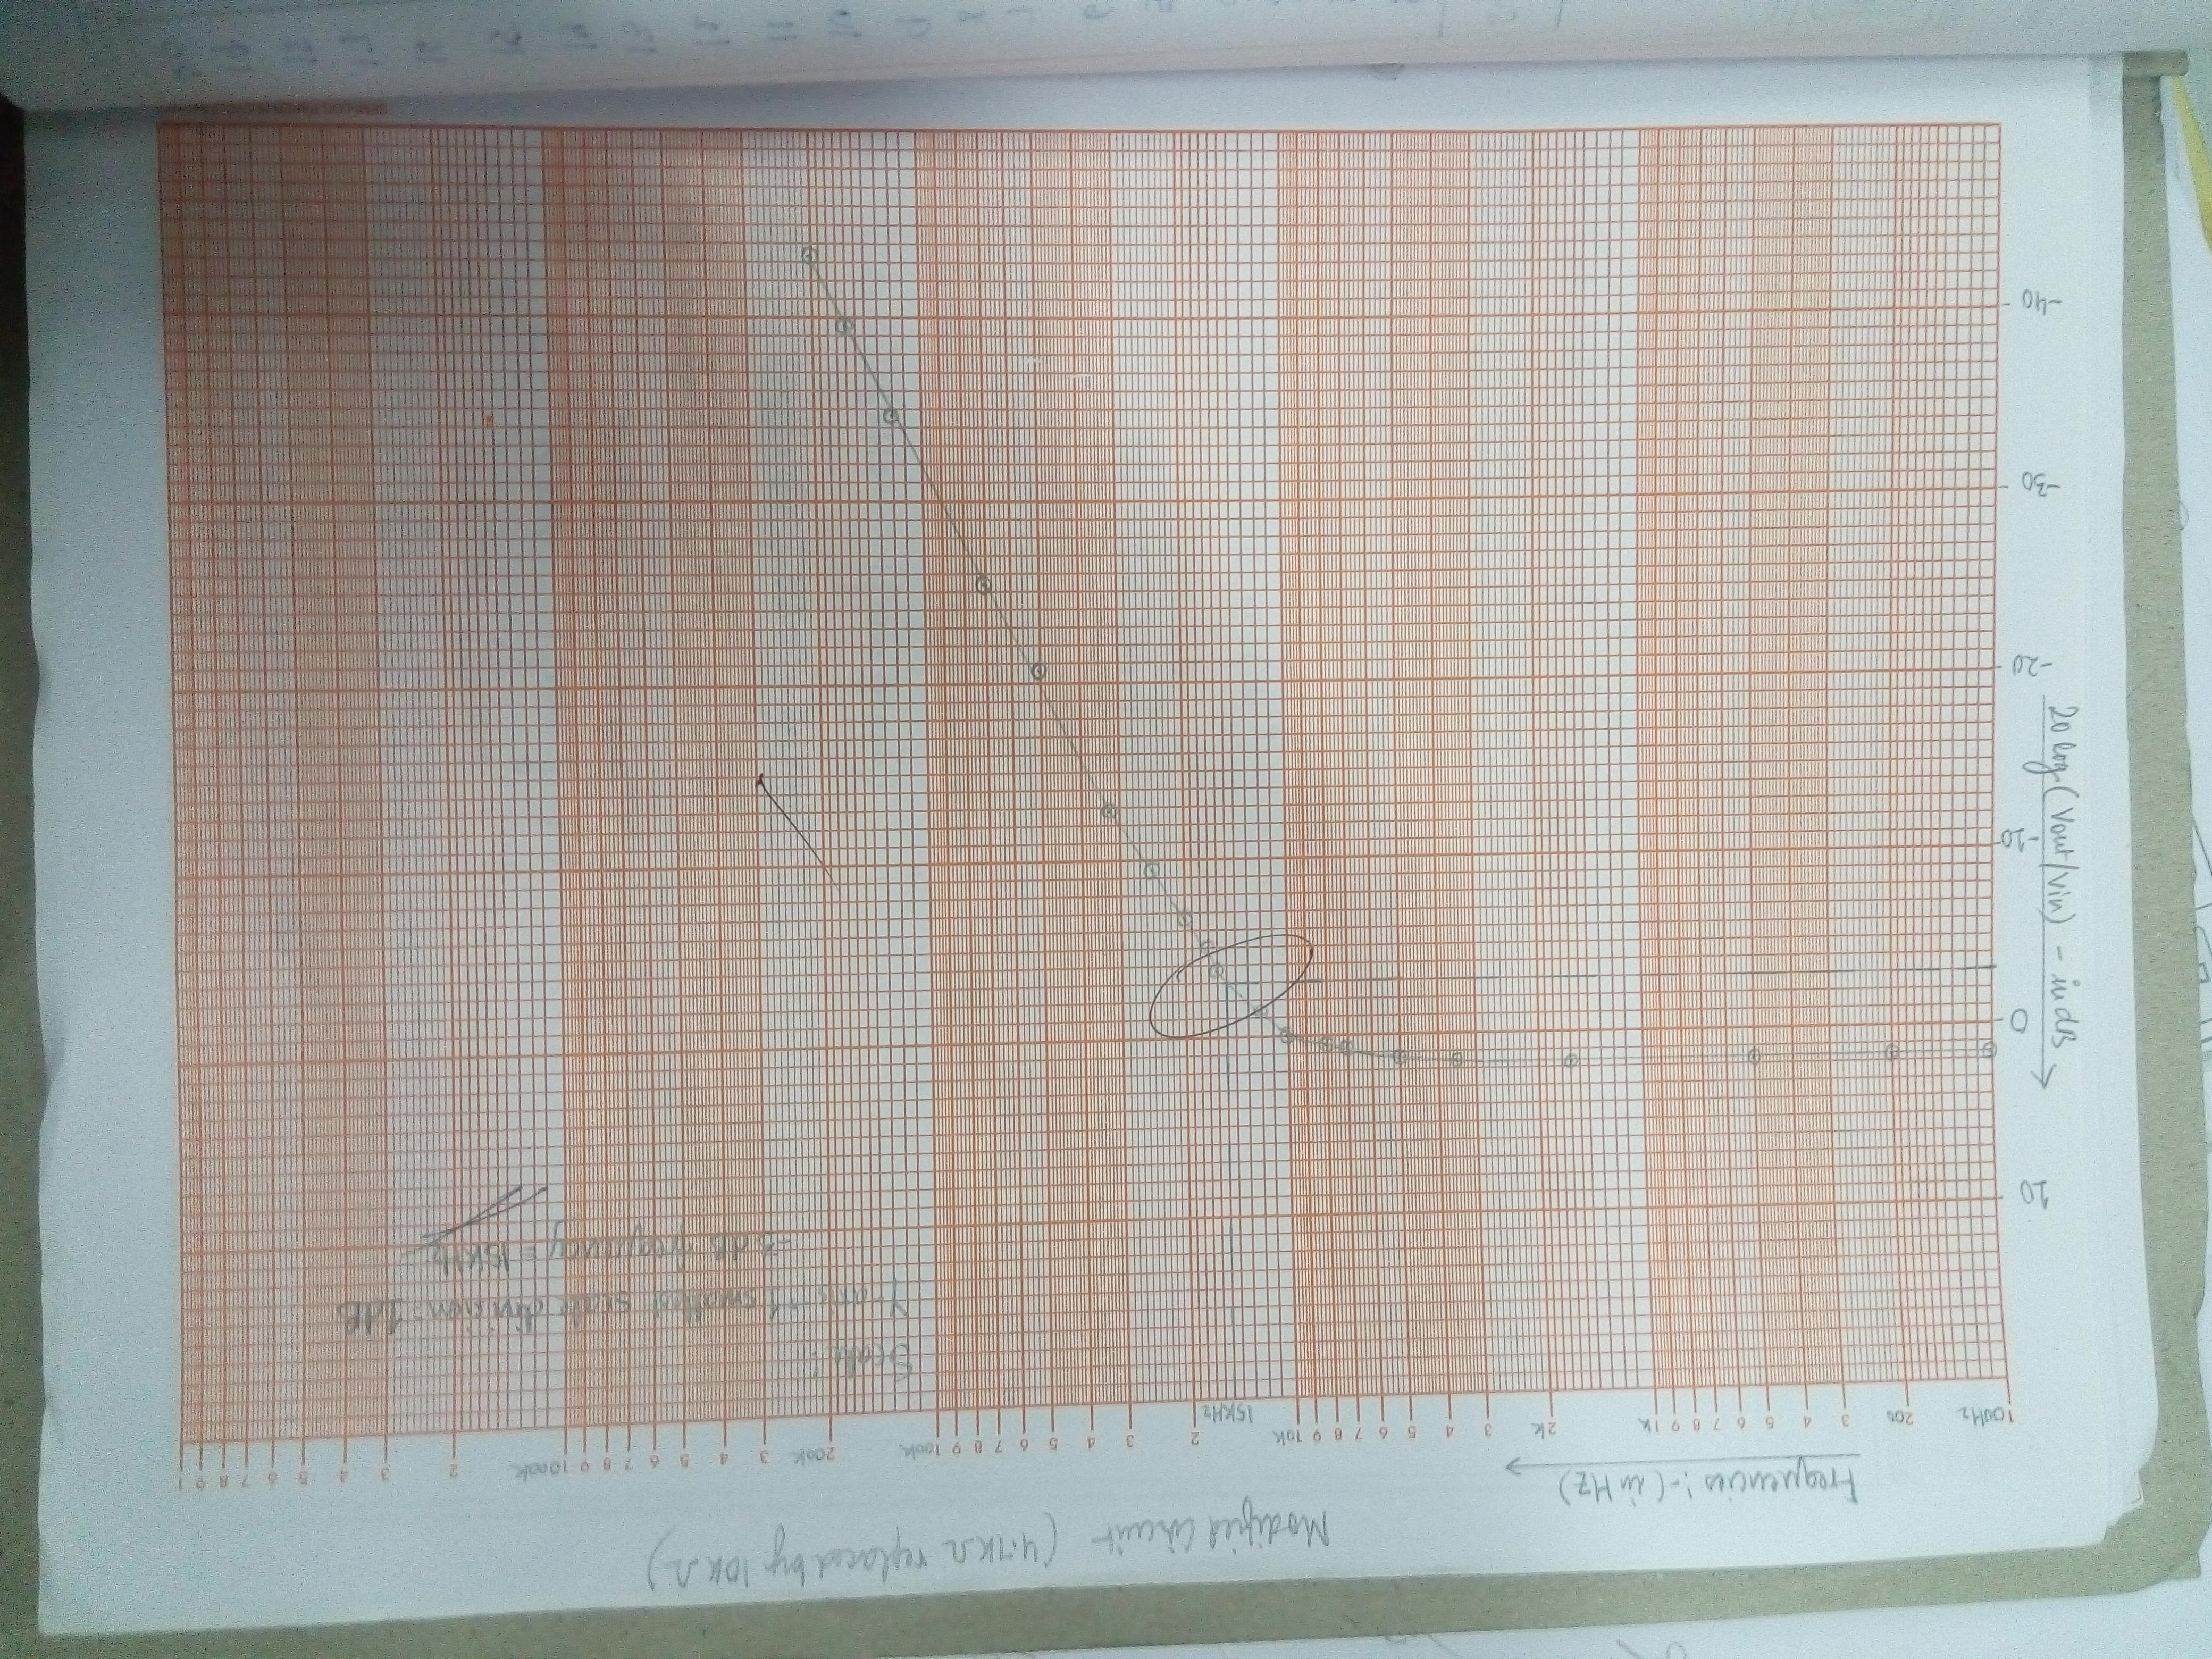 Modified Circuit (4.7KΩ replaced by 10KΩ)
Frequencies :- (in Hz)
100Hz 200 3 4 5 6 7 8 9 1K 2K 3 4 5 6 7 8 9 10K 2 3 4 5 6 7 8 9 100K 200K 3 4 5 6 7 8 9 1000K 2 3 4 5 6 7 8 9 1
15KHz
Scale:
Y-axis → 1 smallest scale division: 1dB
-3 dB frequency = 15KHz
20 log (Vout/Vin) - in dB
10
0
-10
-20
-30
-40